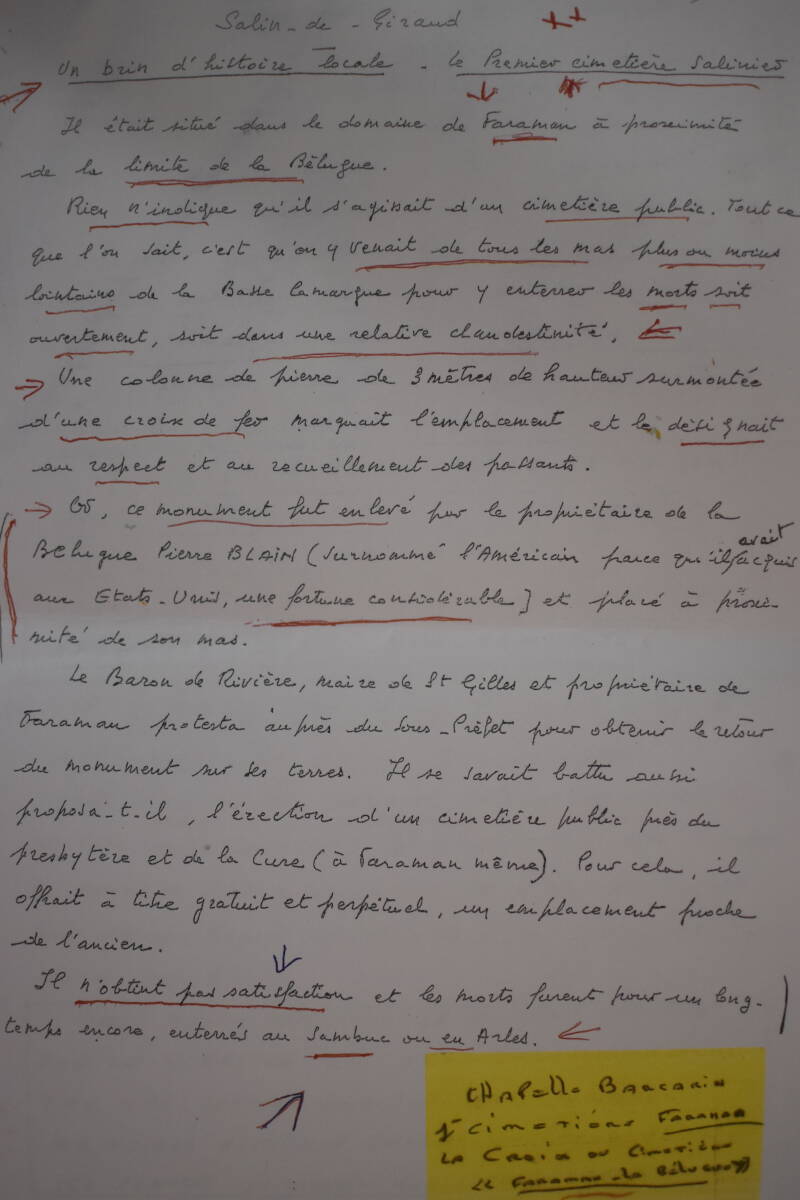 Salin-de-Giraud
Un brin d'histoire locale - le Premier cimetière salinier
Il était situé dans le domaine de Faraman à proximité
de la limite de la Bélugue.
Rien n'indique qu'il s'agissait d'un cimetière public. Tout ce
que l'on sait, c'est qu'on y venait de tous les mas plus ou moins
lointains de la Basse Camargue pour y enterrer les morts soit
ouvertement, soit dans une relative clandestinité.
Une colonne de pierre de 3 mètres de hauteur surmontée
d'une croix de fer marquait l'emplacement et le désignait
au respect et au recueillement des passants.
Or, ce monument fut enlevé par le propriétaire de la
Bélugue Pierre BLAIN (surnommé l'Américain parce qu'il avait acquis
aux Etats-Unis, une fortune considérable) et placé à proxi-
mité de son mas.
Le Baron de Rivière, maire de St Gilles et propriétaire de
Faraman protesta auprès du Sous-Préfet pour obtenir le retour
du monument sur ses terres. Il se savait battu aussi
proposa-t-il, l'érection d'un cimetière public près du
presbytère et de la Cure (à Faraman même). Pour cela, il
offrait à titre gratuit et perpétuel, un emplacement proche
de l'ancien.
Il n'obtint pas satisfaction et les morts furent pour un long-
temps encore, enterrés au Sambuc ou en Arles.
CHApelle BARCARIN
1er cimetière FARAMAN
LA Croix ou Cimetière
« FARAMAN-la Bélugue »